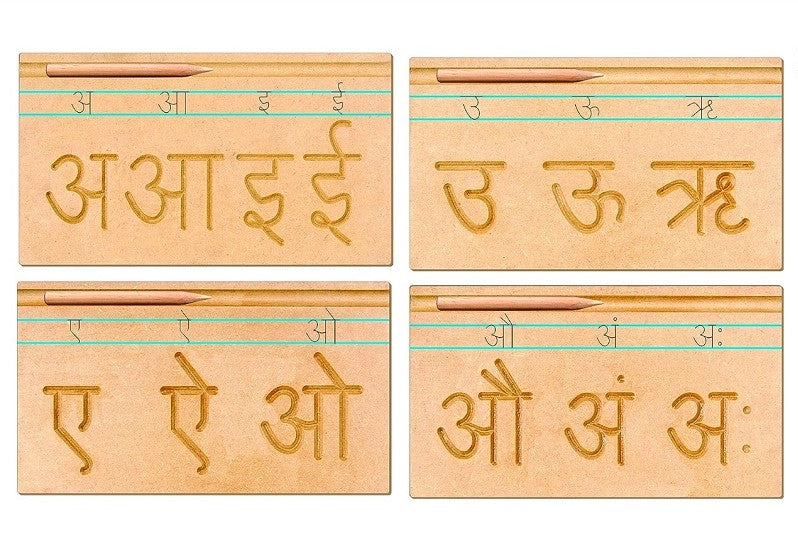 अ आ इ ई
अ आ इ ई
उ ऊ ऋ
उ ऊ ऋ
ए ऐ ओ
ए ऐ ओ
औ अं अः
औ अं अः